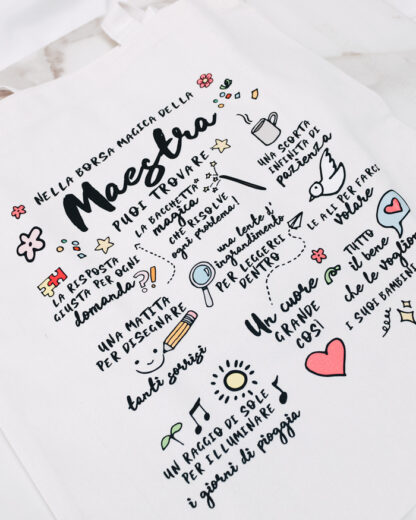 NELLA BORSA MAGICA DELLA
Maestra
PUOI TROVARE
LA BACCHETTA
magica
CHE RISOLVE
ogni problema!
UNA SCORTA
INFINITA DI
pazienza
LE ALI PER FARCI
volare
una lente d'
ingrandimento
PER LEGGERCI
DENTRO
LA RISPOSTA
GIUSTA PER OGNI
domanda
?!
TUTTO
il bene
che le vogliono
I SUOI BAMBINI
UNA MATITA
PER DISEGNARE
tanti sorrisi
Un cuore
GRANDE
COSÌ
UN RAGGIO DI SOLE
PER ILLUMINARE
i giorni di pioggia